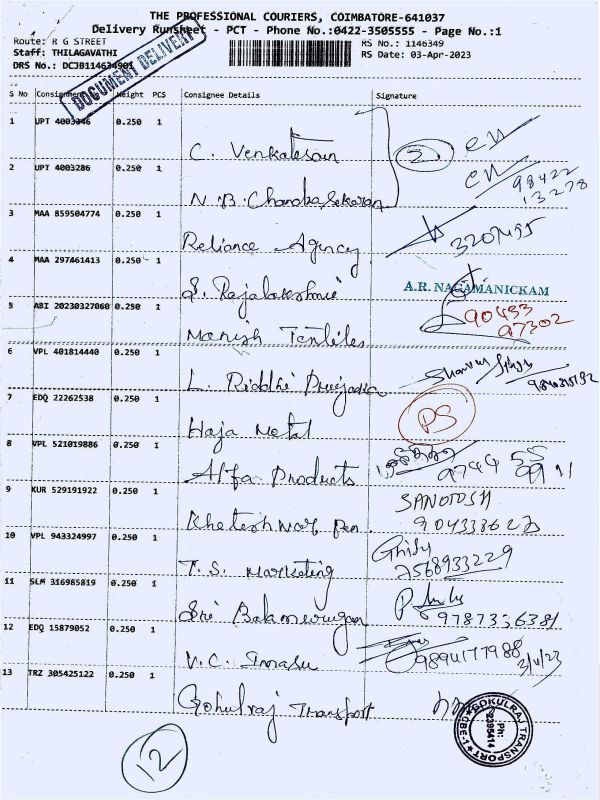 THE PROFESSIONAL COURIERS, COIMBATORE-641037
Delivery Runsheet - PCT - Phone No.:0422-3505555 - Page No.:1
Route: R G STREET
RS No.: 1146349
Staff: THILAGAVATHI
RS Date: 03-Apr-2023
DRS No.: DCJB114634901
DOCUMENT DELIVERY
S No Consignment Weight PCS Consignee Details Signature
1 UPT 4003246 0.250 1
C. Venkatesan 2
2 UPT 4003286 0.250 1
98422
13278
N.B. Chandrasekaran
3 MAA 859504774 0.250 1
Reliance Agency
4 MAA 297461413 0.250 1
S. Rajalakshmi
A.R. NAGAMANICKAM
5 ABI 20230327060 0.250 1
90433
97302
Manish Textiles
6 VPL 401814440 0.250 1
L. Riddhi
7 EDQ 22262538 0.250 1
Haja Metal
PS
8 VPL 521019886 0.250 1
Alfa Products
9744 55
9911
9 KUR 529191922 0.250 1
SANOTOSH
Pen.
10 VPL 943324997 0.250 1
7568933229
T.S. Marketing
11 SLM 316985819 0.250 1
Sri Balamurugan
9787336381
12 EDQ 15879052 0.250 1
V.C.
9894177988
3/4/23
13 TRZ 305425122 0.250 1
Gokulraj Transport
GOKULRAJ TRANSPORT
Ph:
2395414
CBE-1
12